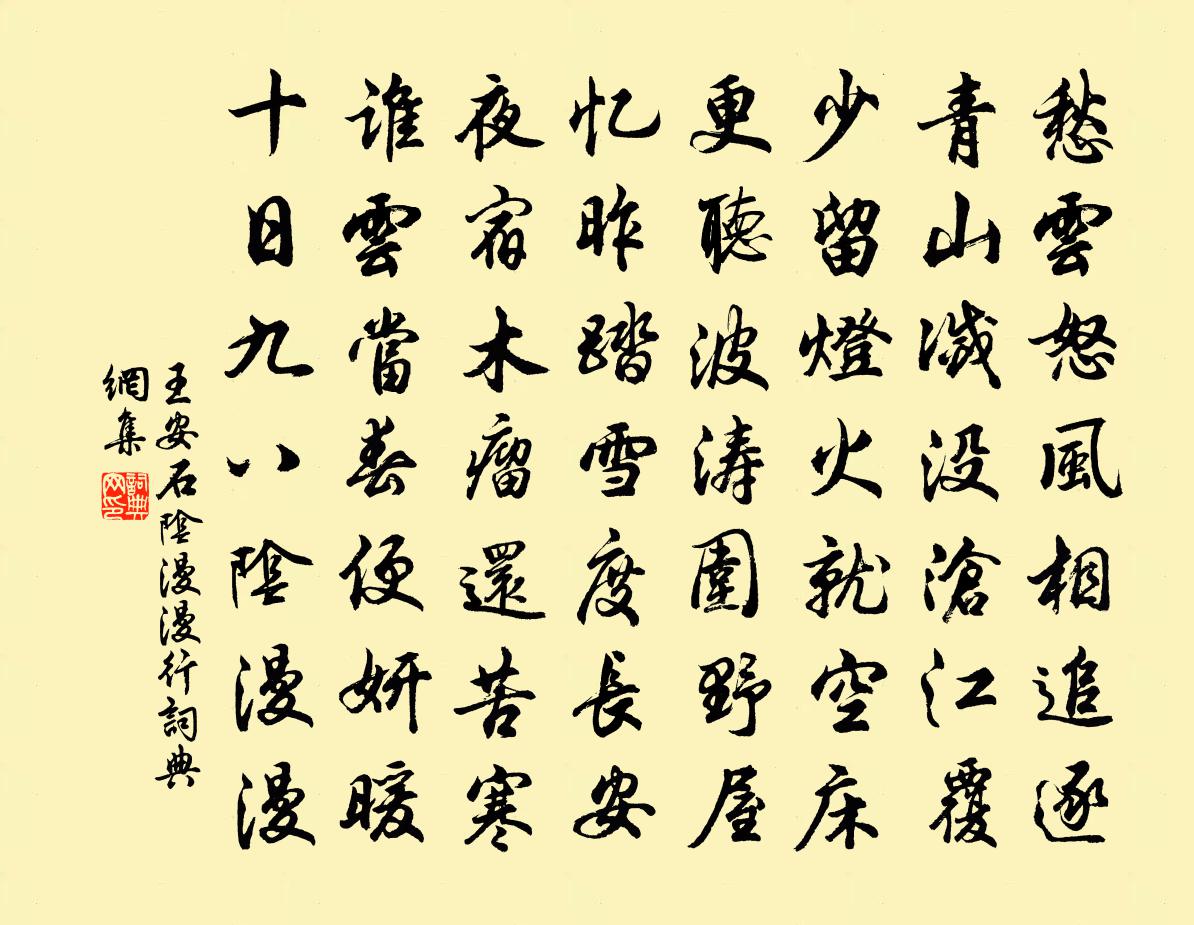 愁雲怒風相追逐
青山滅没滄江覆
少留燈火就空床
更聽波涛圍野屋
忆昨踏雪度長安
夜宿木瘤還苦寒
誰雲當春便妍暖
十日九八陰漫漫
王安石陰漫漫行詞典
網集
詞典
网印